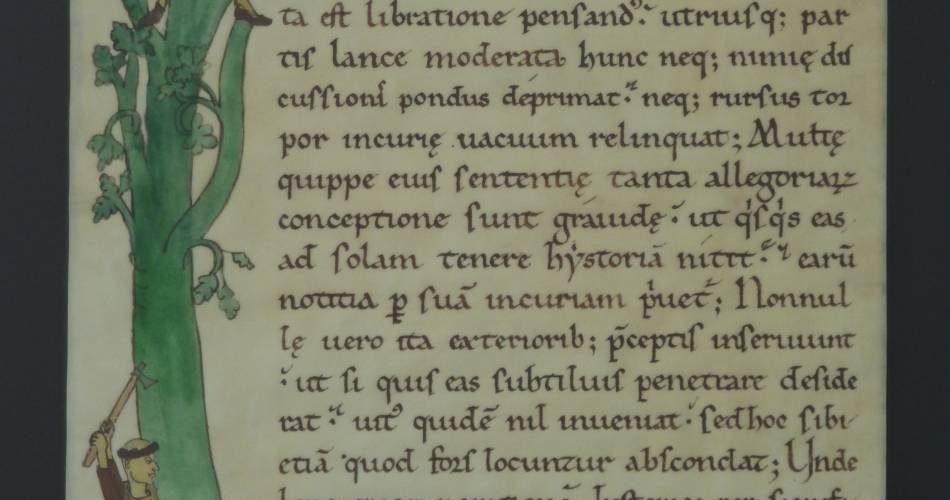 ta est libratione pensand᷒. utriusq; par
tis lance moderata hunc neq; nimię dis
cussionis pondus deprimat. neq; rursus tor
por incurię uacuum relinquat; Multę
quippe eius sententię tanta allegoriaꝝ
conceptione sunt grauidę. ut qͥsqͥs eas
ad solam tenere hystoriā nitit᷑. earū
notitia ꝑ suā incuriam pͥuet᷑; Nonnul
lę uero ita exteriorib; p̄ceptis inseruiunt
ut si quis eas subtilius penetrare deside
rat. int᷒ quidē nil inueniat. sed hoc sibi
etiā quod foris locuntur abscondat; Unde